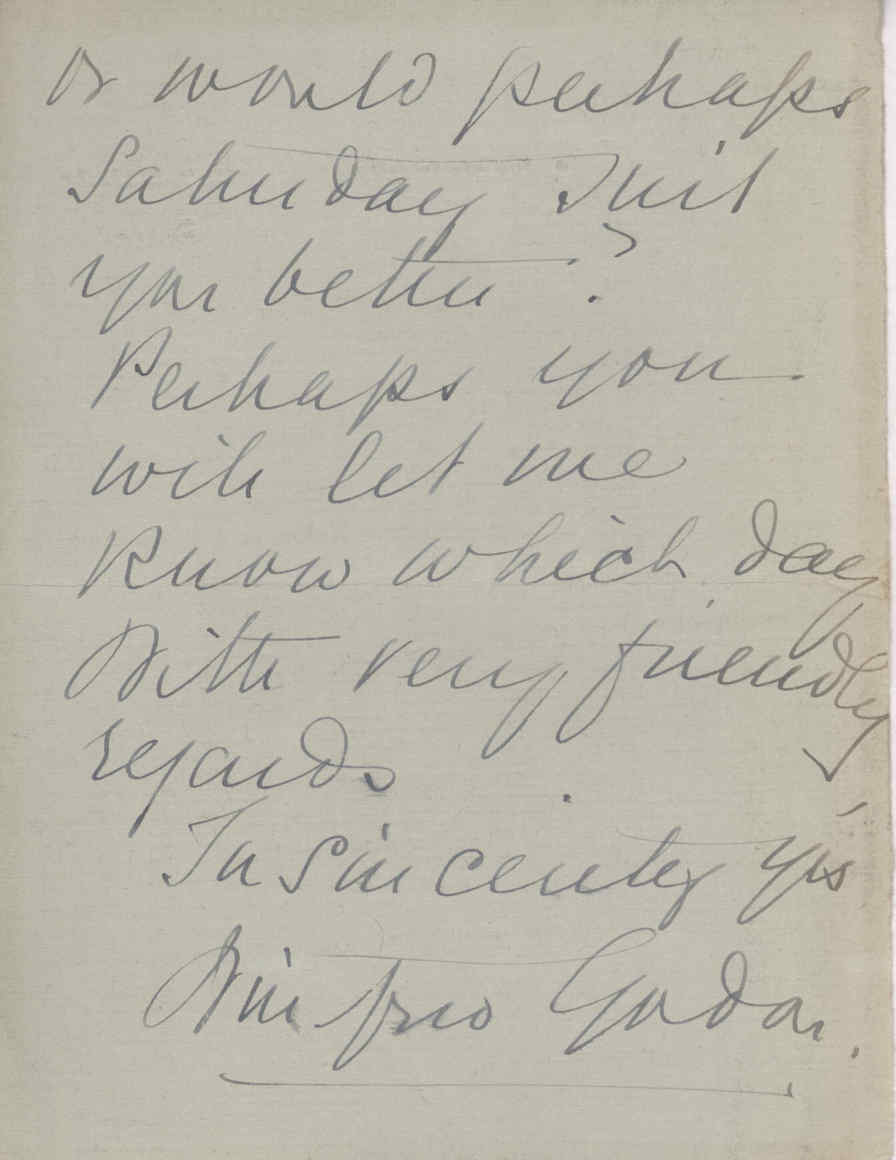 or would perhaps
Saturday suit
you better?
Perhaps you
will let me
know which day
With very friendly
regards
In sincerity yrs